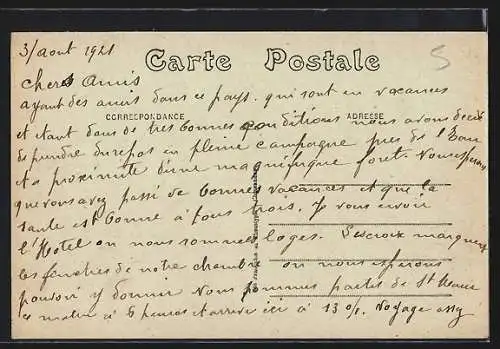 3/août 1921
Carte Postale
5
chers Amis
ayant des amis dans ce pays. qui sont en vacances
CORRESPONDANCE
ADRESSE
et étant dans de tres bonnes conditions nous avons décidé
de prendre du repos en pleine campagne pres de l'Eau
et a proximité d'une magnifique foret. Nous esperons
que vous avez passé de bonnes vacances et que la
santé est bonne à tous trois. Je vous envoie
l'Hotel ou nous sommes loges. Les croix marquent
les fenetres de notre chambre ou nous esperons
pouvoir y dormir Nous sommes partis de St
ce matin à 6 heures et arrivé ici à 13 h. Voyage